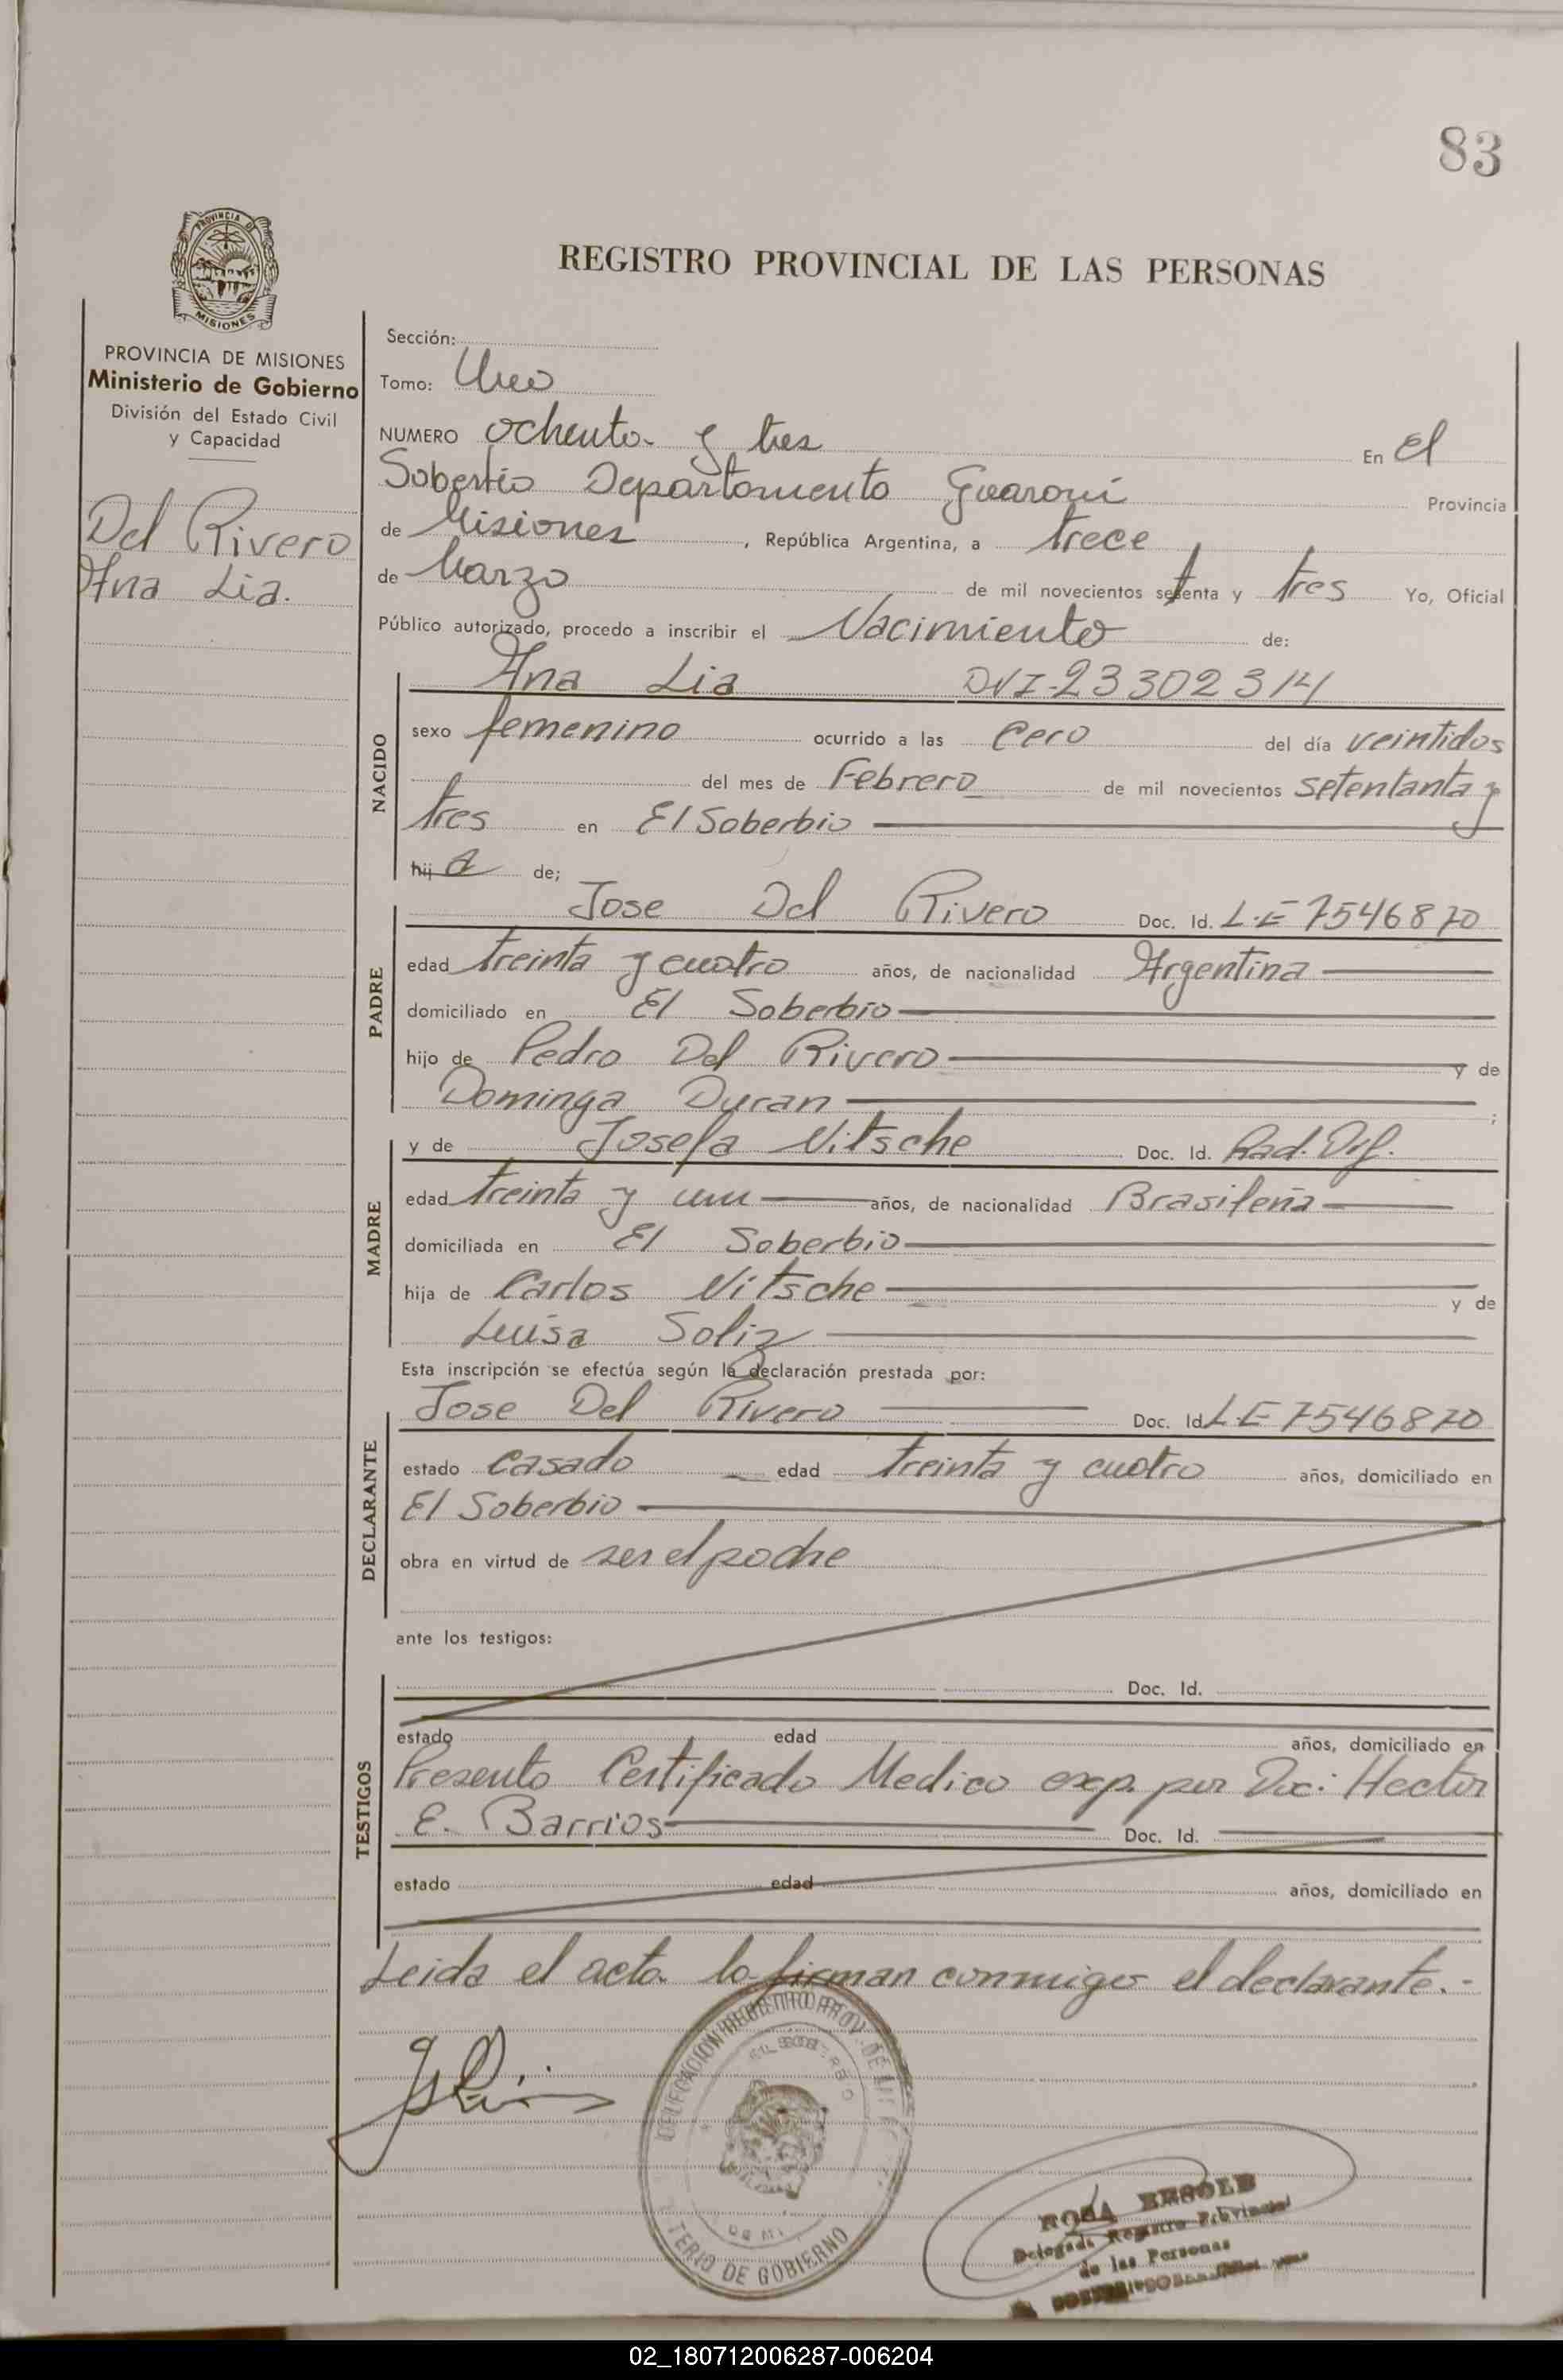 83
PROVINCIA DE
MISIONES
REGISTRO PROVINCIAL DE LAS PERSONAS
PROVINCIA DE MISIONES
Ministerio de Gobierno
División del Estado Civil
y Capacidad
Del Rivero
Ana Lia.
Sección:
Tomo: Uno
NUMERO ochenta y tres En El
Soberbio Departamento Guaraní Provincia
de Misiones, República Argentina, a trece
de Marzo de mil novecientos setenta y tres Yo, Oficial
Público autorizado, procedo a inscribir el Nacimiento de:
NACIDO
Ana Lia DNI-23302314
sexo femenino ocurrido a las Cero del día veintidos
del mes de Febrero de mil novecientos setentanta y
tres en El Soberbio
hij a de;
PADRE
Jose Del Rivero Doc. Id. L.E 7546870
edad treinta y cuatro años, de nacionalidad Argentina
domiciliado en El Soberbio
hijo de Pedro Del Rivero y de
Dominga Duran ;
MADRE
y de Josefa Nitsche Doc. Id. Rad. Def.
edad treinta y un años, de nacionalidad Brasileña
domiciliada en El Soberbio
hija de Carlos Nitsche y de
Luisa Soliz
Esta inscripción se efectúa según la declaración prestada por:
DECLARANTE
Jose Del Rivero Doc. Id. LE 7546870
estado Casado edad treinta y cuatro años, domiciliado en
El Soberbio
obra en virtud de ser el padre
ante los testigos:
TESTIGOS
Doc. Id.
estado edad años, domiciliado en
Presento Certificado Medico exp. por Doc: Hector
E. Barrios Doc. Id.
estado edad años, domiciliado en
Leida el acta la firman conmigo el declarante.-
DELEGACION REGISTRO PROV. DE
EL SOBERBIO
TERIO DE GOBIERNO
ROSA
Delegada Registro Provincial
de las Personas
02_180712006287-006204